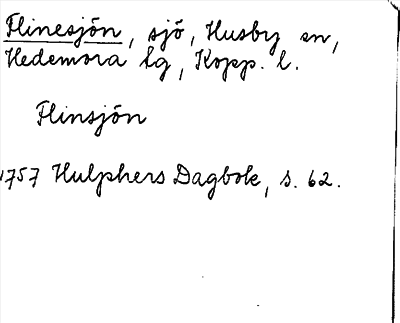 Flinesjön, sjö, Husby sn,
Hedemora lg, Kopp. l.
Flinsjön
1757 Hulphers Dagbok, s. 62.